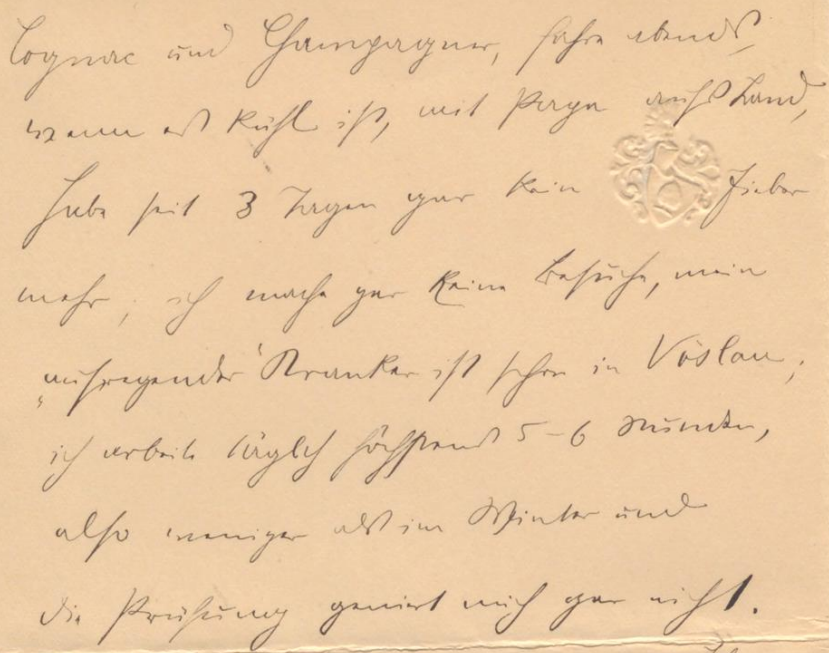 Cognac und Champagner, fahre abends,
wenn es kühl ist, mit Papa aufs Land,
habe seit 3 Tagen gar kein Fieber
mehr, ich mache gar keine Besuche, mein
„aufregender“ Kranker ist schon in Vöslau,
ich arbeite täglich höchstens 5-6 Stunden,
also weniger als im Winter und
die Prüfung geniert mich gar nicht.